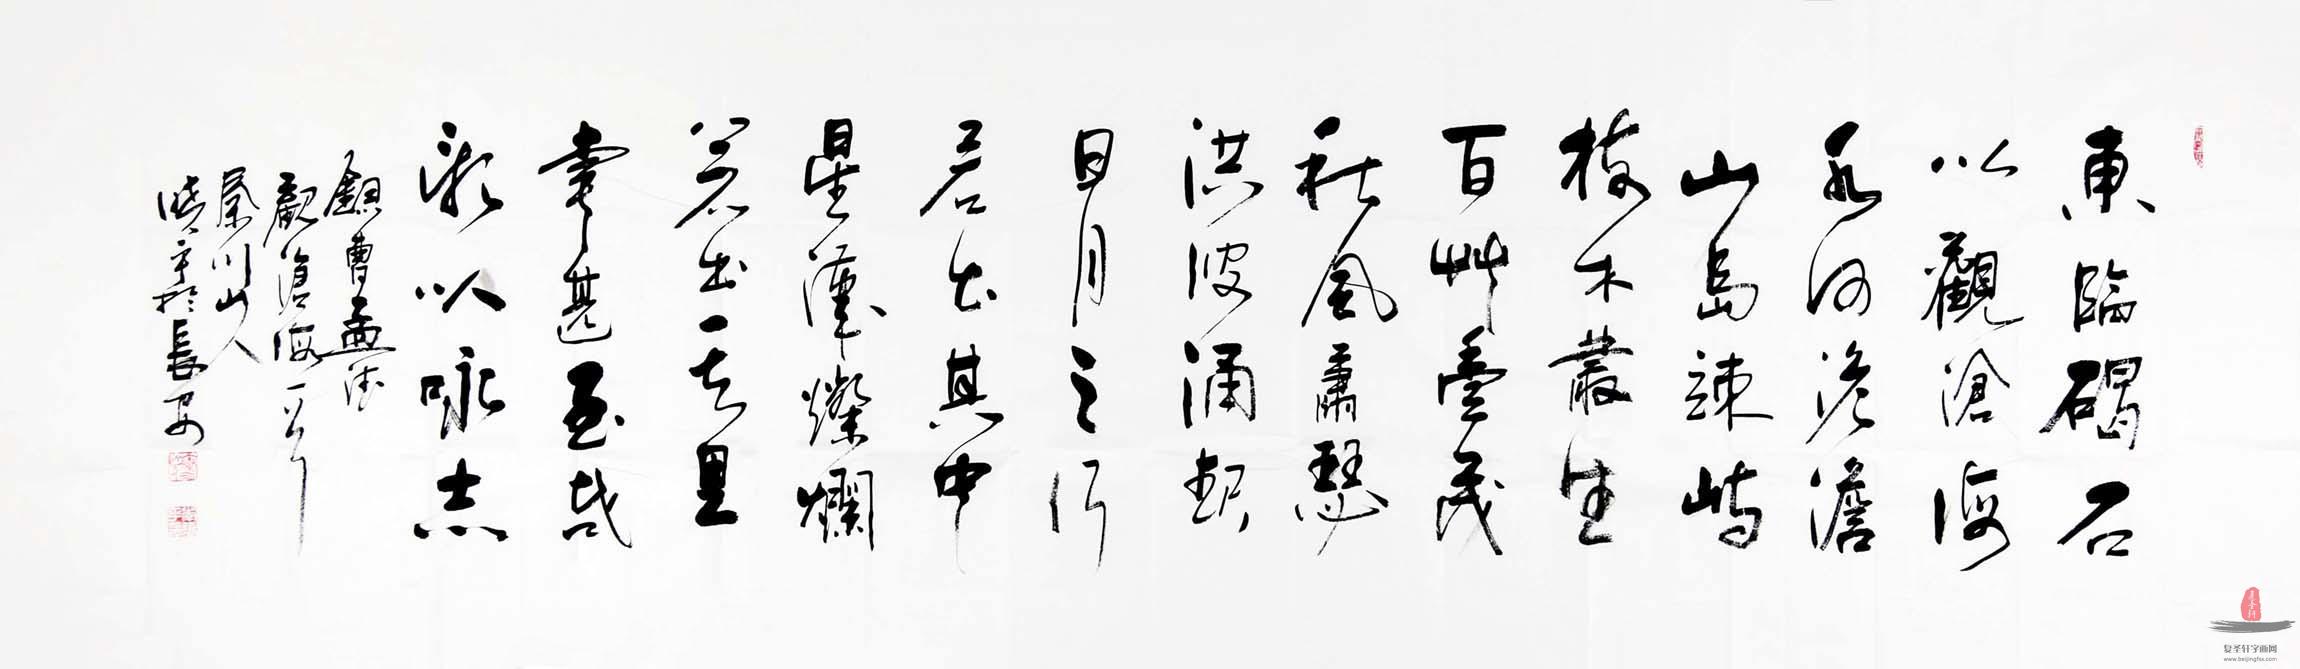 東臨碣石
以觀滄海
水何澹澹
山島竦峙
樹木叢生
百艸豐茂
秋風蕭瑟
洪波涌起
日月之行
若出其中
星漢燦爛
若出其里
幸甚至哉
歌以咏志
錄曹孟德
觀滄海一首
秦川山人
於長安
复圣轩字画网
www.beijingfsx.com